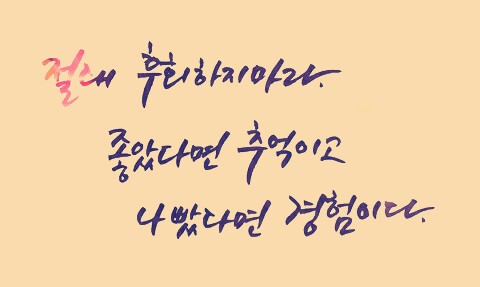 절대 후회하지마라.
좋았다면 추억이고
나빴다면 경험이다.